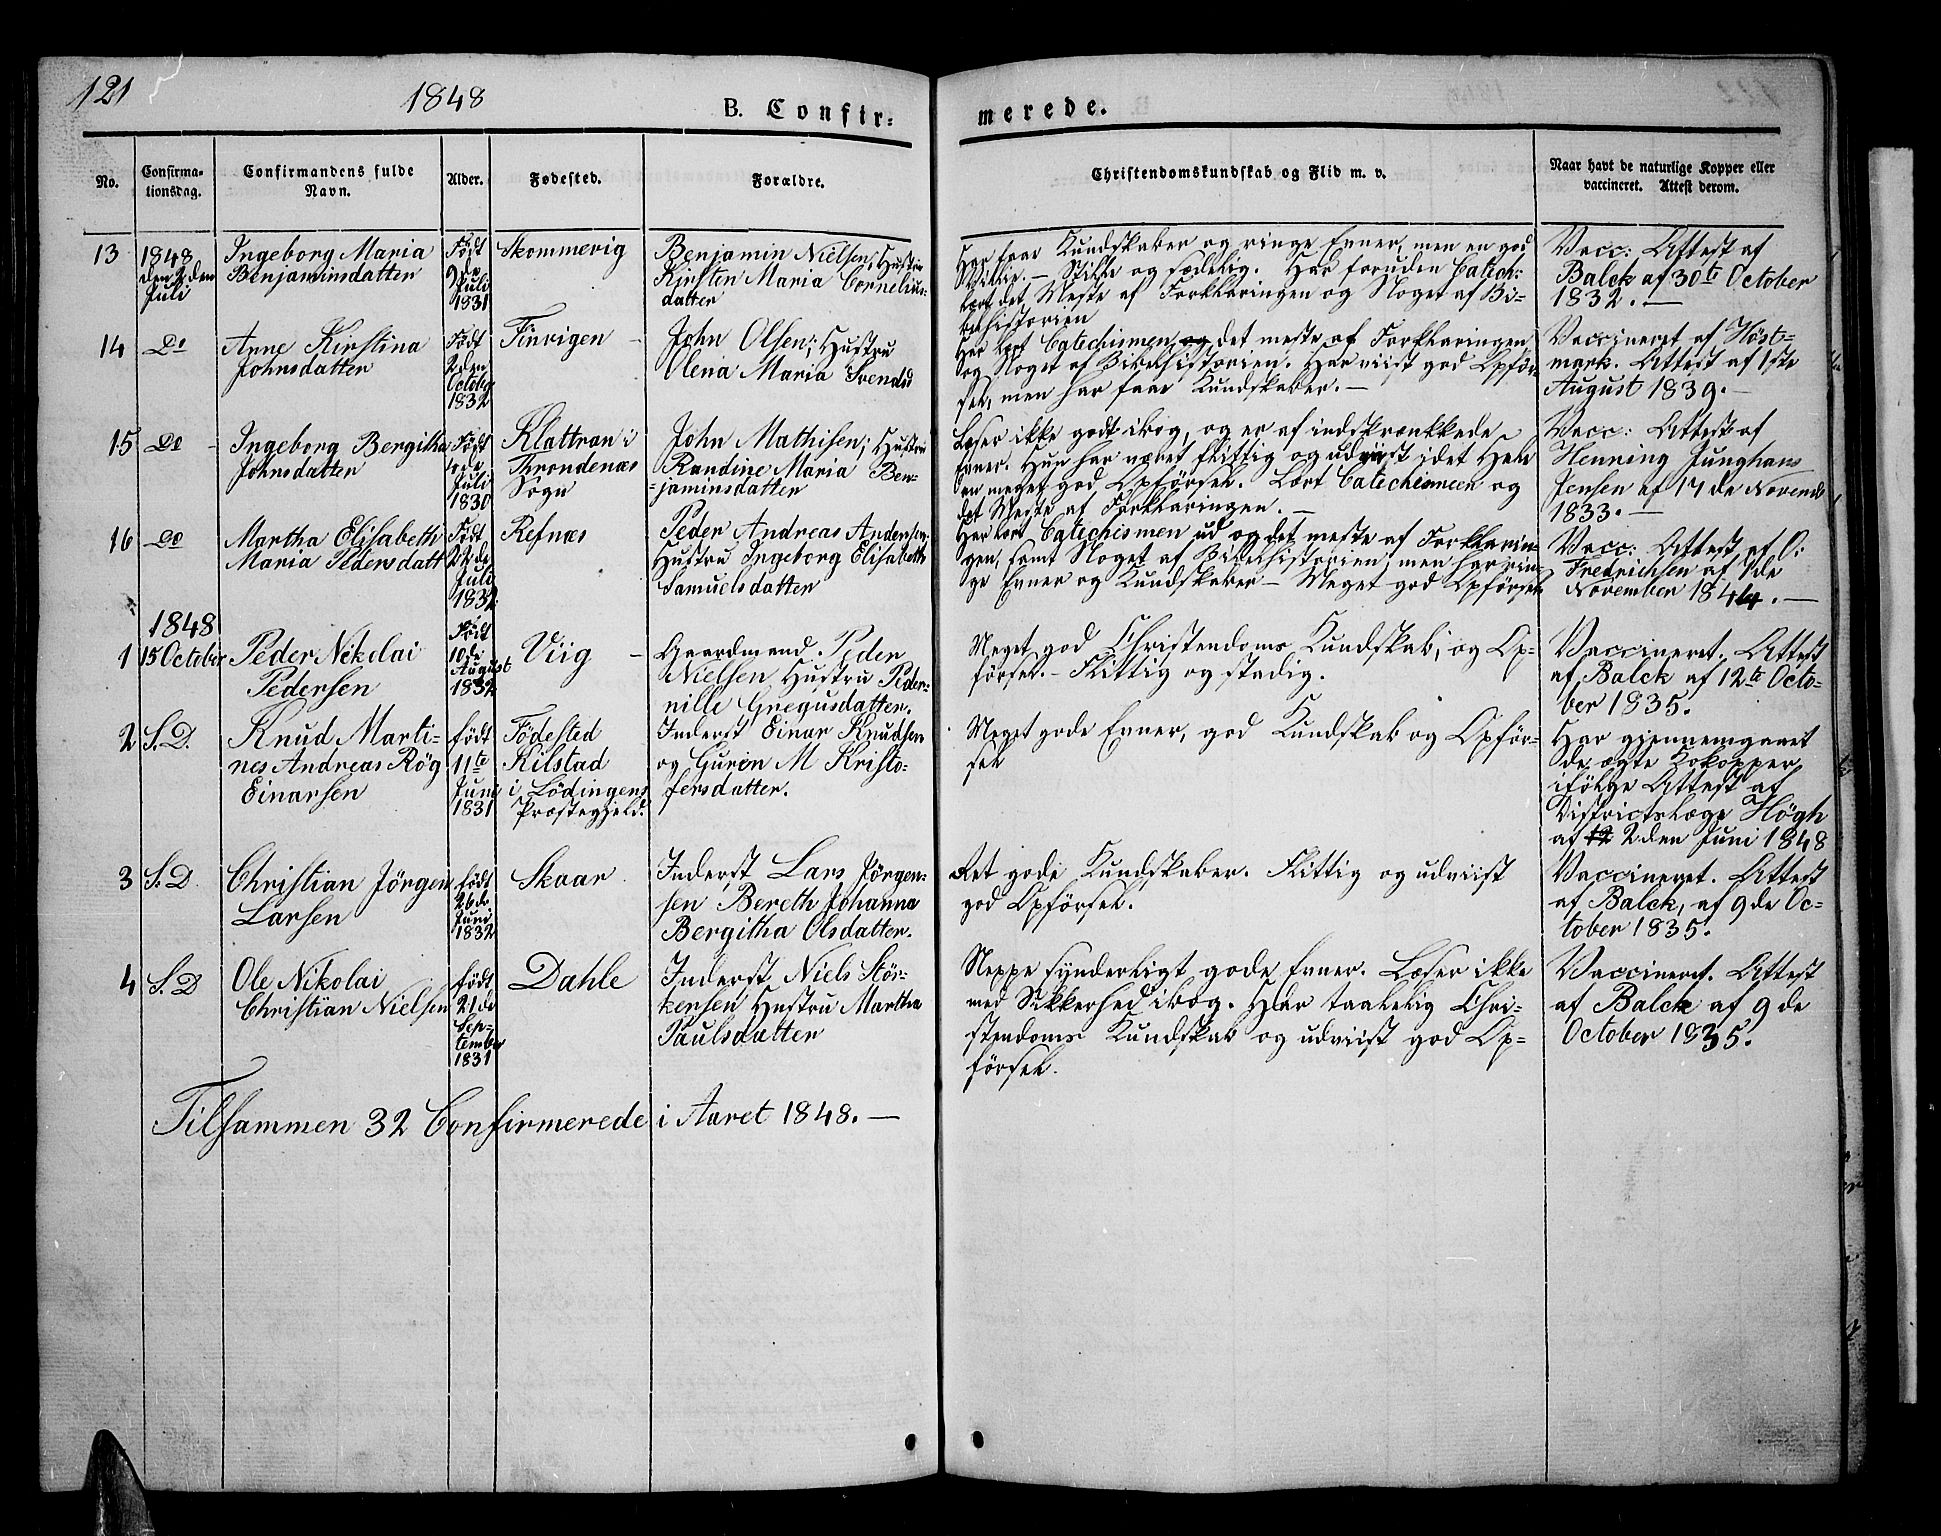 121
1848
B. Confir-
merede.
No.
Confirma-
tionsdag.
Confirmandens fulde
Navn.
Alder.
Fødested.
Forældre.
Christendomskundskab og Flid m. v.
Naar havt de naturlige Kopper eller
vaccineret. Attest derom.
13
1848
den 2den
Juli
Ingeborg Maria
Benjaminsdatter
Født
9de
Juli
1831
Skommevig
Benjamin Nielsen; Hustru
Kirsten Maria Cornelius-
datter
Har faae Kundskaber og ringe Evner, men en god
Villie. – Stille og sædelig. Har foruden Catech:
lært det Meste af Forklaringen og Noget af Bi-
belhistorien
Vacc: Attest af
Balck af 30te October
1832. –
14
Do
Anne Kirstina
Johnsdatter
Født
2den
October
1832
Finvigen –
John Olsen; Hustru
Olena Maria Svendsd
Har lært Catechismen, og det meste af Forklaringen
og Noget af Bibelhistorien. Har viist god Opfør-
sel, men har faae Kundskaber. –
Vaccineret af Höst-
mark. Attest af 1ste
August 1839. –
15
Do –
Ingeborg Bergitha
Johnsdatter
Født
Juli
1830
Klattran i
Throndenæs
Sogn
John Mathisen; Hustru
Randine Maria Ben-
=jaminsdatter
Læser ikke godt ibog, og er af indskrænkkede
Evner. Hun har været flittig og udviist idet Hele
en meget god Opførsel. Lært Catechismen og
det Meste af Forklaringen. –
Vacc: Attest af
Henning Junghans
Jensen af 17de Novemb
1833. –
16
Do
Martha Elisabeth
Maria Pedersdatt
Født
22de
Juli
1832
Refnæs
Peder Andreas Andersen
Hustru Ingeborg Elisabeth
Samuelsdatter
Har lært Catechismen ud og det meste af Forklarin-
gen, samt Noget af Bibelhistorien, men har rin-
ge Evner og Kundskaber – Meget god Opførsel
Vacc: Attest af O:
Fredrichsen af 1de
November 1844. –
1848
1
15 October
Peder Nikolai
Pedersen
Født
10de
August
1832
Viig –
Gaardmand Peder
Nielsen Hustru Peder-
nille Gregusdatter.
Meget god Christendoms Kundskab, og Op-
førsel. – Flittig og stadig.
Vaccineret. Attest
af Balck af 12te Octo-
ber 1835.
2
S. D.
Knud Marti-
nes Andreas Røg
Einarsen
født
11te
Juni
1831
Födested
Kilstad
i Lödingens
Præstegjeld.
Inderst Einar Knudsen
og Guren M Kristo-
fersdatter.
Meget gode Evner, god Kundskab og Opfør-
sel
Har gjennemgaaet
de ægte Kokopper
ifölge Attest af
Districtslæge Högh
af 12 2den Juni 1848
3
S. D.
Christian Jörgen
Larsen
født
26de
Juni
1832
Skaar
Inderst Lars Jörgen-
sen Bereth Johanna
Bergitha Olsdatter.
Ret gode Kundskaber. Flittig og udviist
god Opførsel.
Vaccineret. Attest
af Balck, af 9de Oc-
tober 1835.
4
S. D
Ole Nikolai
Christian Nielsen
født
21de
Sep-
tember
1831
Dahle
Inderst Niels Stör-
kersen Hustru Martha
Paulsdatter
Neppe synderligt gode Evner. Læser ikke
med Sikkerhed ibog. Har taalelig Chri-
stendoms Kundskab og udviist god Op-
førsel.
Vaccineret. Attest
af Balck af 9de
October 1835.
Tilsammen 32 Confirmerede i Aaret 1848. –